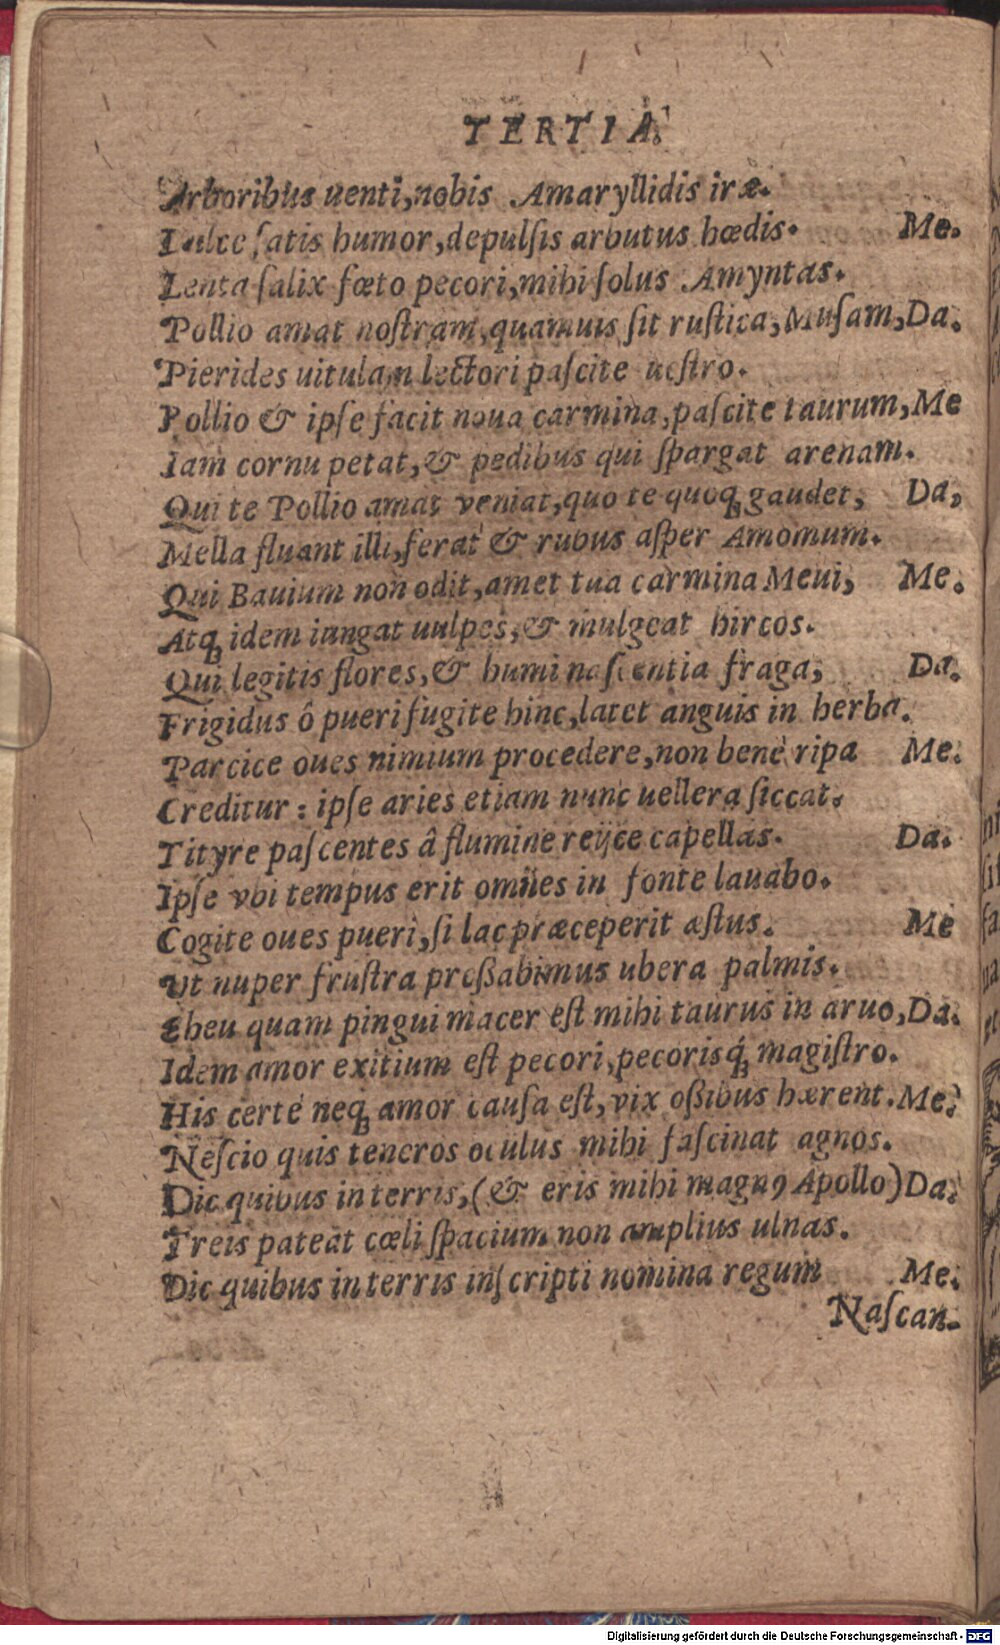 TERTIA.
Arboribus uenti, nobis Amaryllidis iræ.
Dulce ſatis humor, depulſis arbutus hœdis. Me.
Lenta ſalix fœto pecori, mihi ſolus Amyntas.
Pollio amat noſtram, quamuis ſit ruſtica, Muſam, Da.
Pierides uitulam lectori paſcite ueſtro.
Pollio & ipſe facit noua carmina, paſcite taurum, Me
Iam cornu petat, & pedibus qui ſpargat arenam.
Qui te Pollio amat veniat, quo te quoqꝫ gaudet, Da,
Mella fluant illi, ferat & rubus aſper Amomum.
Qui Bauium non odit, amet tua carmina Meui, Me.
Atqꝫ idem iungat uulpes, & mulgeat hircos.
Qui legitis flores, & humi naſcentia fraga, Da.
Frigidus ô pueri fugite hinc, latet anguis in herba.
Parcice oues nimium procedere, non bene ripa Me.
Creditur : ipſe aries etiam nunc uellera ſiccat.
Tityre paſcentes â flumine reijce capellas. Da.
Ipſe vbi tempus erit omnes in fonte lauabo.
Cogite oues pueri, ſi lac præceperit æſtus. Me
Vt nuper fruſtra preßabimus ubera palmis.
Eheu quam pingui macer eſt mihi taurus in aruo, Da.
Idem amor exitium eſt pecori, pecorisqꝫ́ magiſtro.
His certé neqꝫ amor cauſa eſt, vix oßibus hærent. Me.
Neſcio quis teneros oculus mihi faſcinat agnos.
Dic quibus in terris, (& eris mihi magnꝰ Apollo) Da.
Treis pateat cœli ſpacium non amplius ulnas.
Dic quibus in terris inſcripti nomina regum Me.
Naſcan-
Digitalisierung gefördert durch die Deutsche Forschungsgemeinschaft - DFG